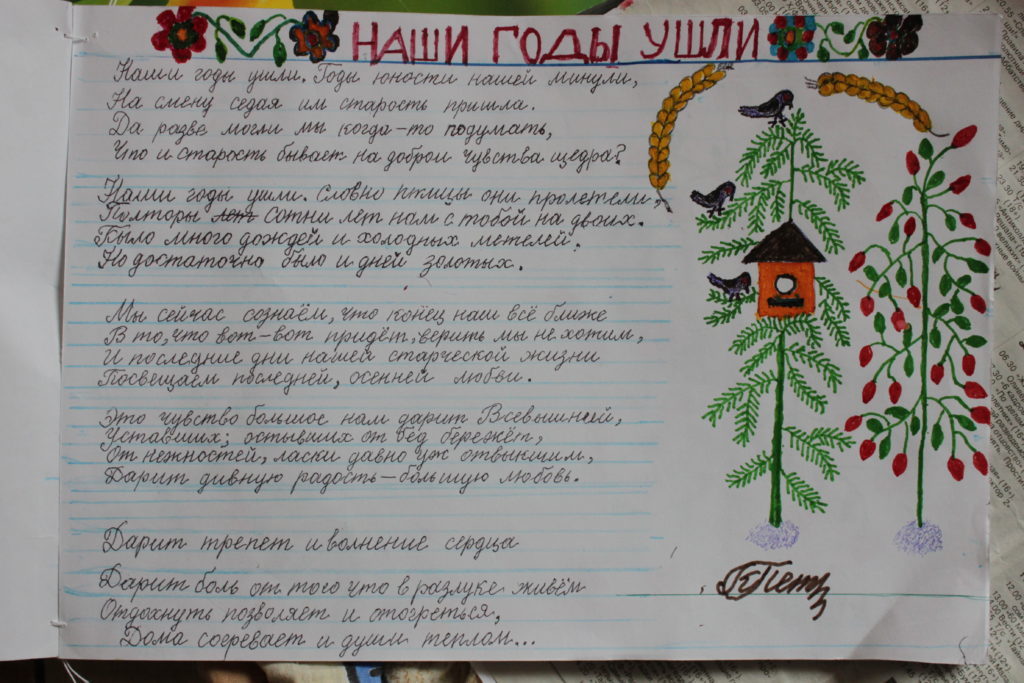 НАШИ ГОДЫ УШЛИ
Наши годы ушли. Годы юности нашей минули,
На смену седая им старость пришла.
Да разве могли мы когда-то подумать,
Что и старость бывает на добрые чувства щедра?
Наши годы ушли. Словно птицы они пролетели,
Полторы лет сотни лет нам с тобой на двоих.
Было много дождей и холодных метелей.
Но достаточно было и дней золотых.
Мы сейчас сознаём, что конец наш всё ближе
В то, что вот-вот придёт, верить мы не хотим,
И последние дни нашей старческой жизни
Посвещаем последней, осенней любви.
Это чувство большое нам дарит Всевышний,
Уставших, остывших от бед бережёт,
От нежностей, ласки давно уж отвыкшим,
Дарит дивную радость – большую любовь.
Дарит трепет и волнение сердца
Дарит боль от того что в разлуке живём
Отдохнуть позволяет и отогреться,
Дома согревает и души теплом...